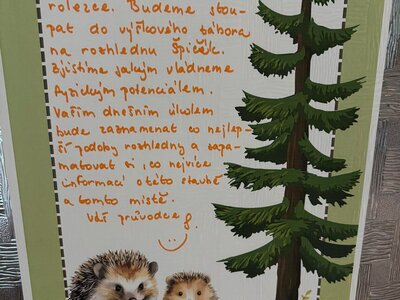 rolezce. Budeme stou-
pat do výškového tábora
na rozhlednu Špičák.
Zjistíme jakým vládneme
fyzickým potenciálem.
Vaším dnešním úkolem
bude zaznamenat co nejlep-
ší podoby rozhledny a zapa-
matovat si, co nejvíce
informací o této stavbě
a tomto místě.
Váš průvodce